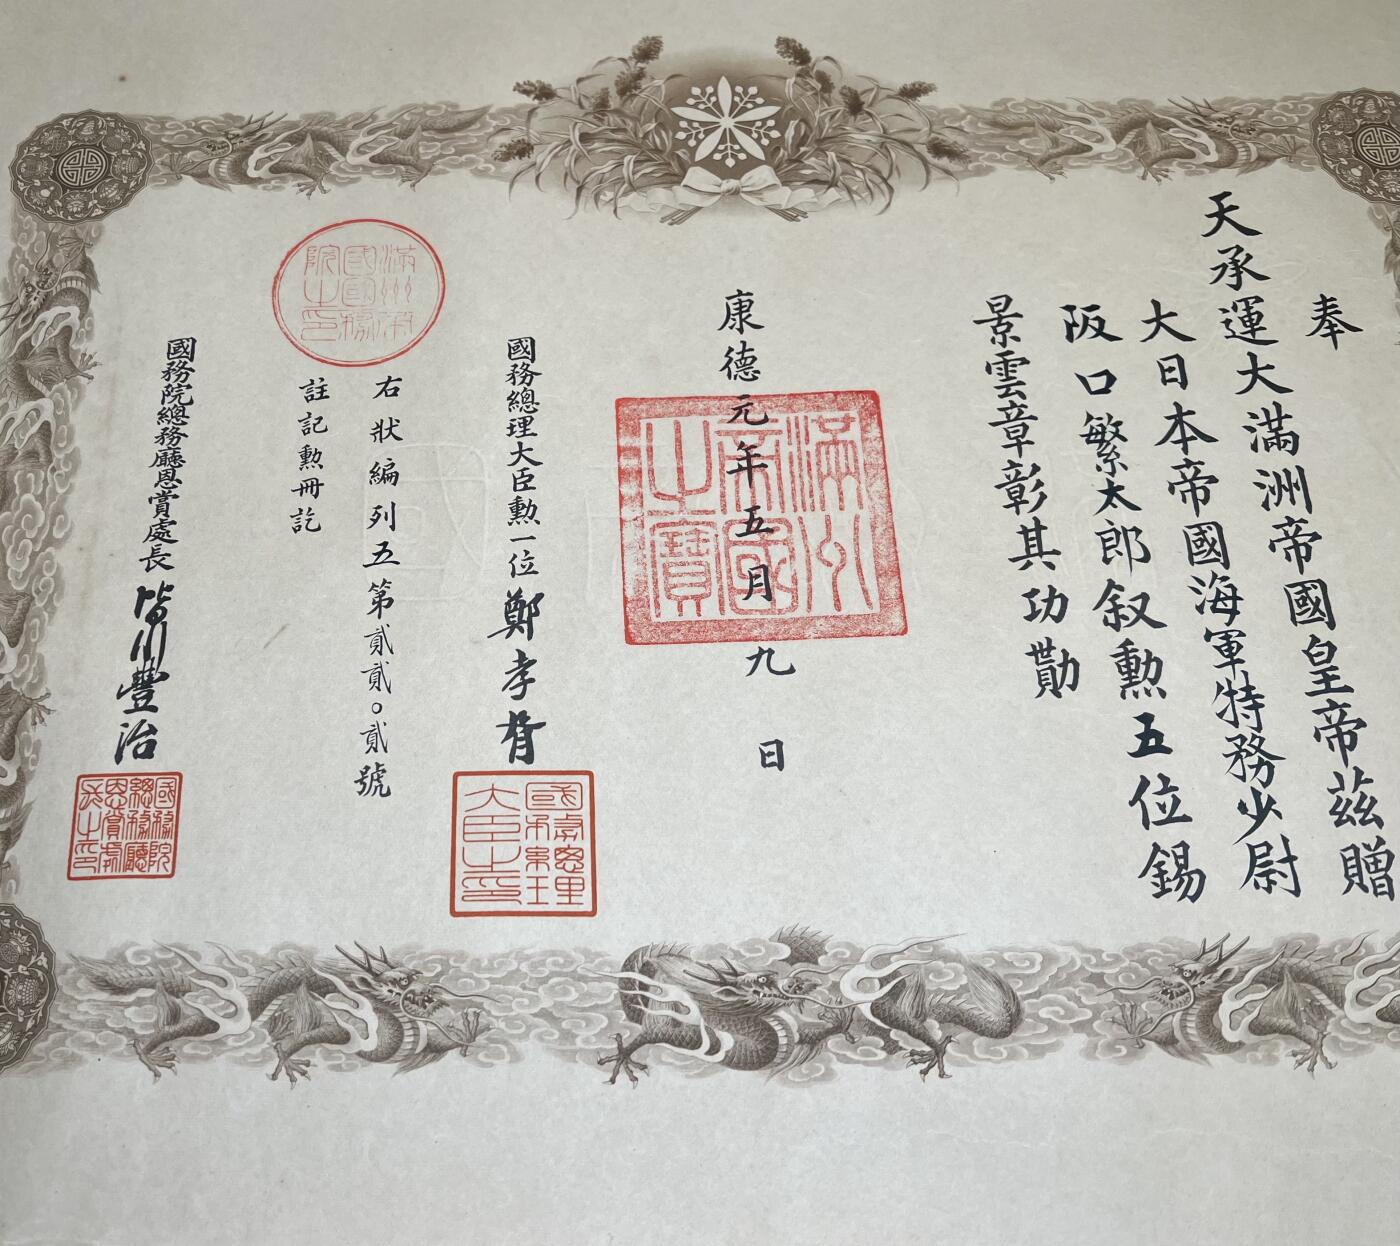 奉
天承運大滿洲帝國皇帝茲贈
大日本帝國海軍特務少尉
阪口繁太郎叙勲五位錫
景雲章彰其功勩
康德元年五月九日
滿州帝國之寶
國務總理大臣勲一位鄭孝胥
國務總理大臣之印
右狀編列五第貳貳○貳號
註記勲冊訖
滿洲帝國國務院之印
國務院總務廳恩賞處長皆川豐治
國務院總務廳恩賞處長之印